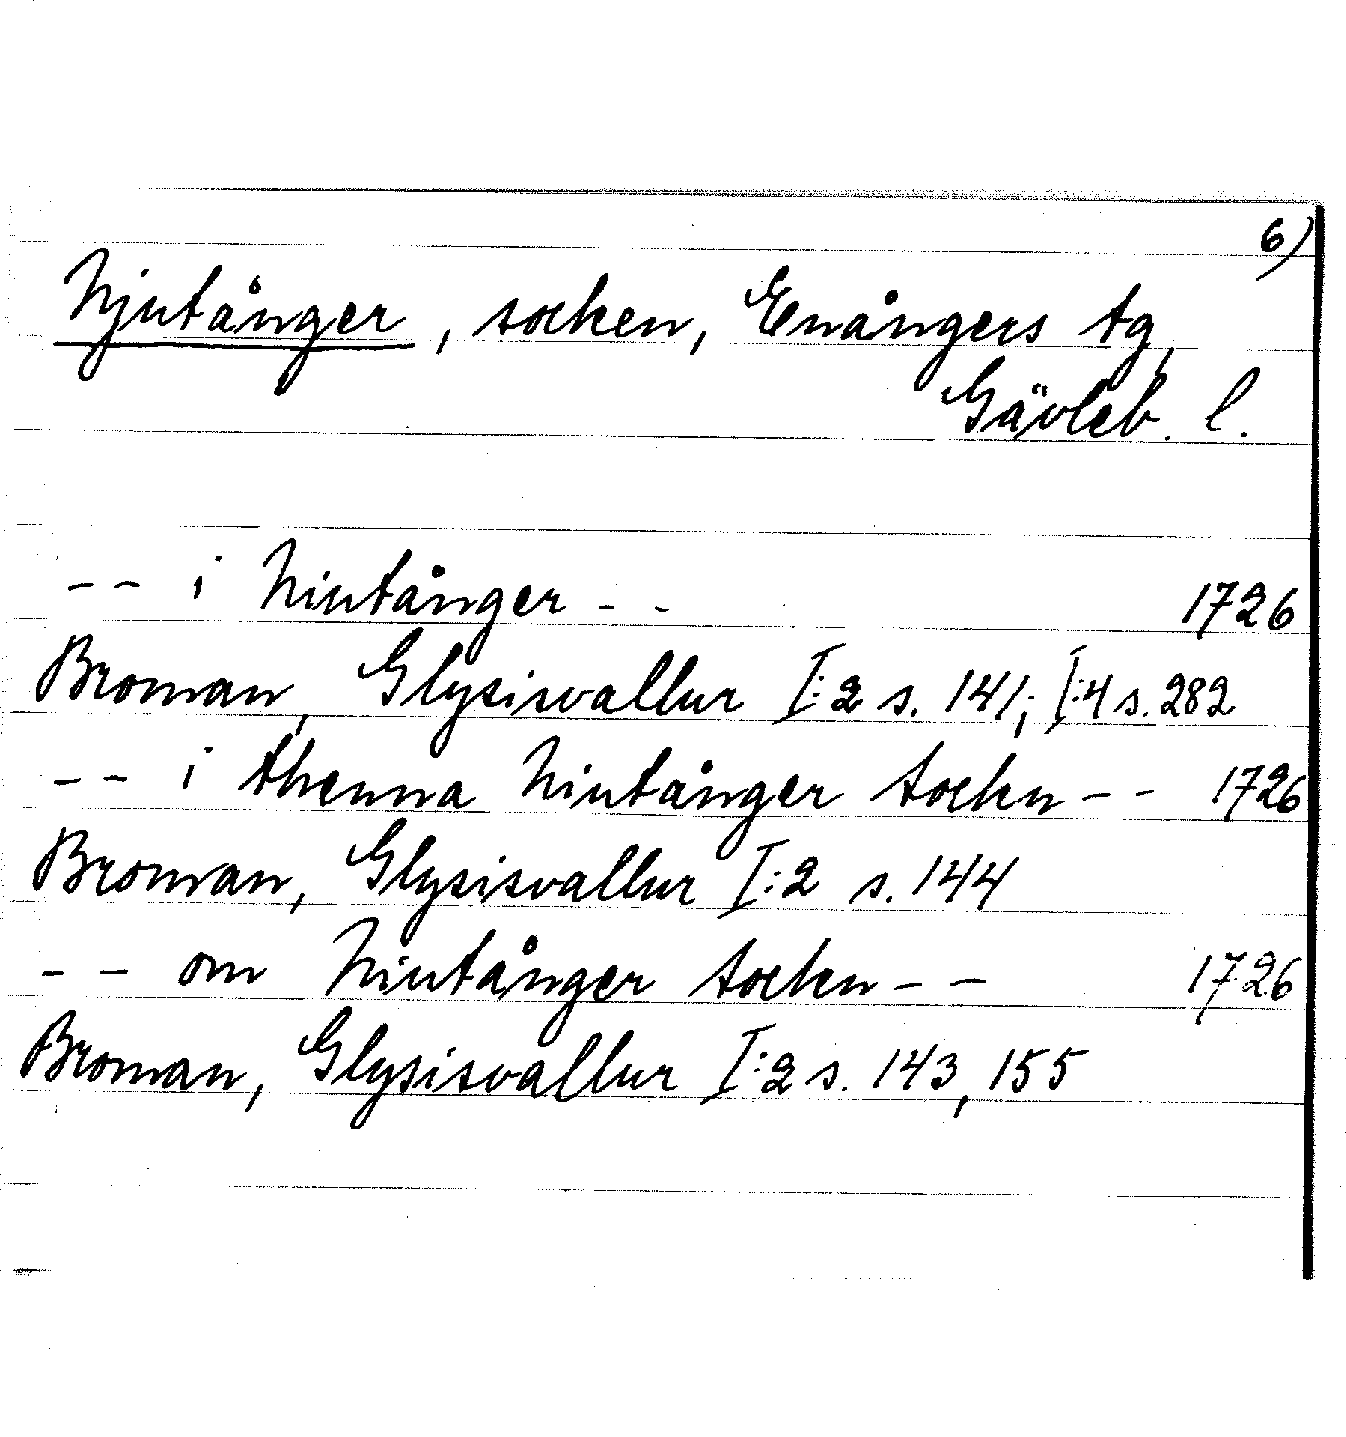 6)
Njutånger, socken, Enångers tg,
Gävleb. l.
-- i Niutånger -- 1726
Broman, Glysisvallur I:2 s. 141; I:4 s. 282
-- i thenna Niutånger sockn -- 1726
Broman, Glysisvallur I:2 s. 144
-- om Niutånger sockn -- 1726
Broman, Glysisvallur I:2 s. 143, 155